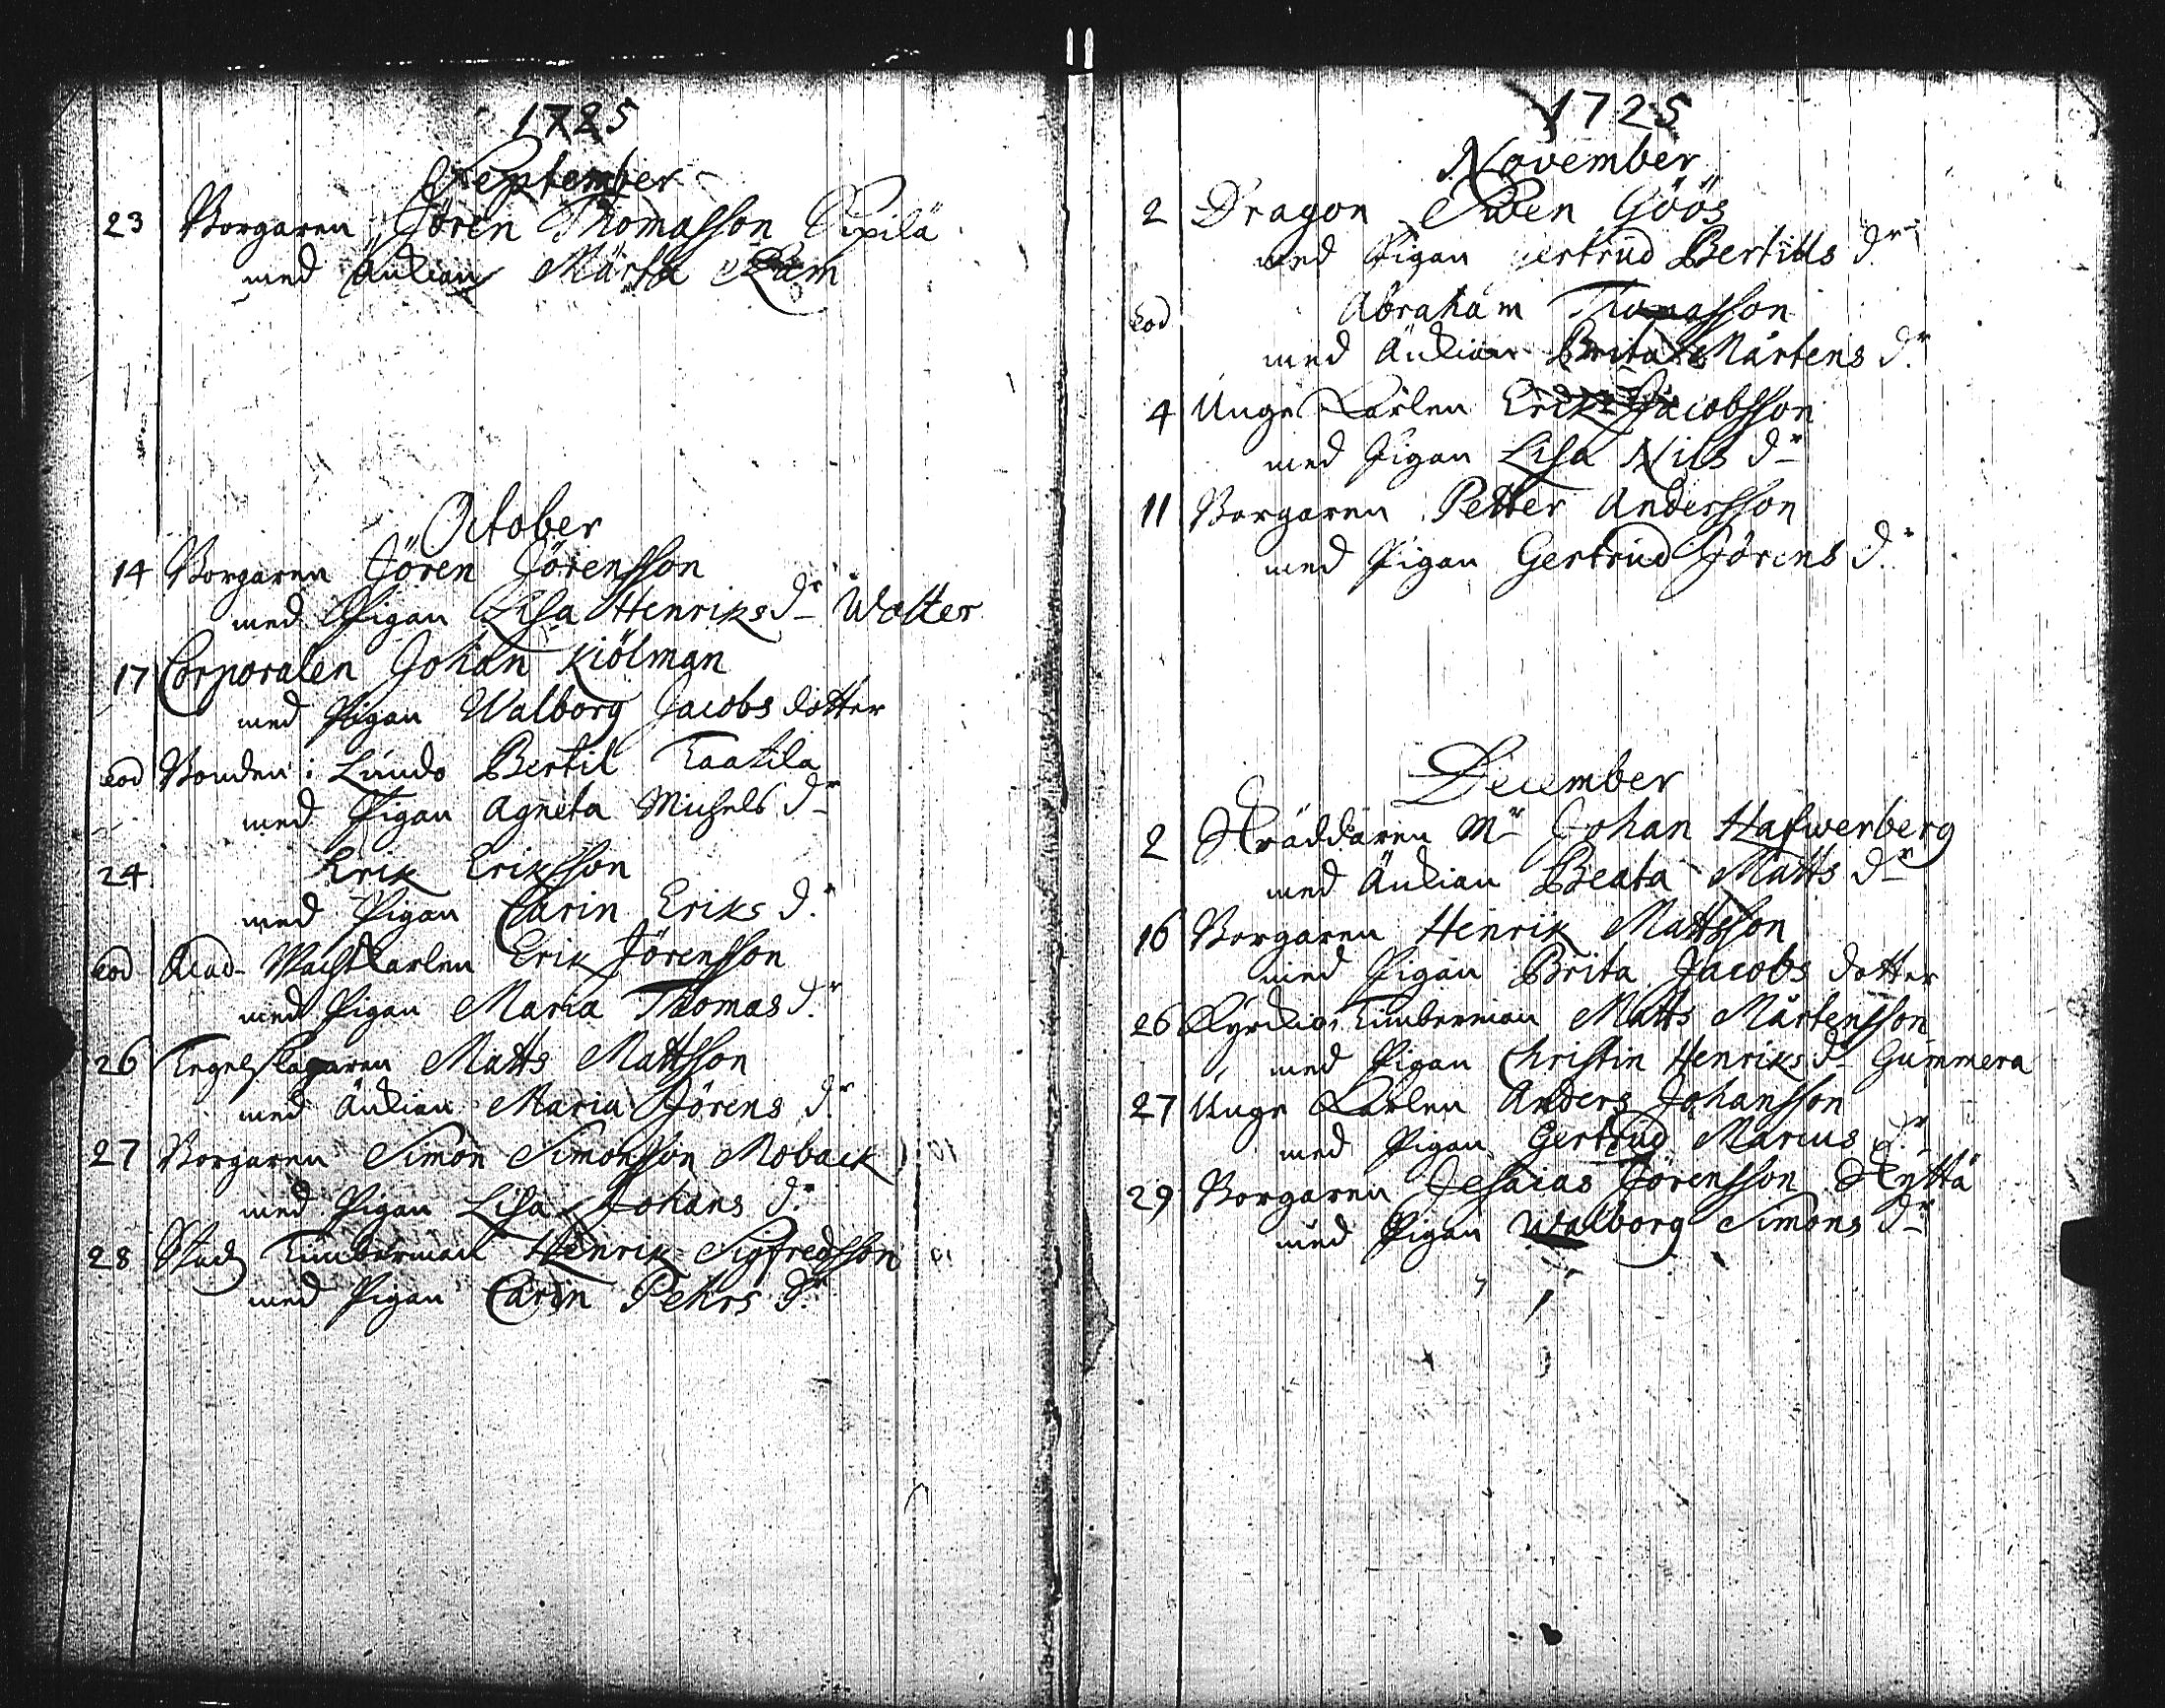 1725
September
23 Borgaren Jören Thomasson Pipilä
med Änkian Märta Ram
October
14 Borgaren Jören Jörensson
med Pigan Lisa Henriks dr Wolter
17 Corporalen Johan Kiölman
med Pigan Walborg Jacobs dotter
eod Bonden i Lundo Bertil Taatila
med Pigan Agneta Michels dr
24 Erik Eriksson
med Pigan Carin Eriks dr
eod Acad. Wachtkarlen Erik Jörensson
med Pigan Maria Thomas dr
26 Tegelslagaren Matts Mattsson
med Änkian Maria Jörens dr
27 Borgaren Simon Simonsson Moback
med Pigan Lisa Johans dr
28 Stads Timberman Henrik Sigfredsson
med Pigan Carin Pehrs dr
1725
November
2 Dragon Swen Göös
med Pigan Gertrud Bertills dr
eod Abraham Thomasson
med Änkian Brita Mårtens dr
4 Unge Karlen Erik Jacobsson
med Pigan Lisa Nils dr
11 Borgaren Petter Andersson
med Pigan Gertrud Jörens dr
December
2 Skräddaren Mr Johan Hafwerberg
med Änkian Beata Matts dr
16 Borgaren Henrik Mattsson
med Pigan Brita Jacobs dotter
26 Kyrkio Timberman Matts Mårtensson
med Pigan Christin Henriks dr Gummera
27 Unge Karlen Anders Johansson
med Pigan Gertrud Marcus dr
29 Borgaren Jesaias Jörensson Kyttä
med Pigan Walborg Simons dr